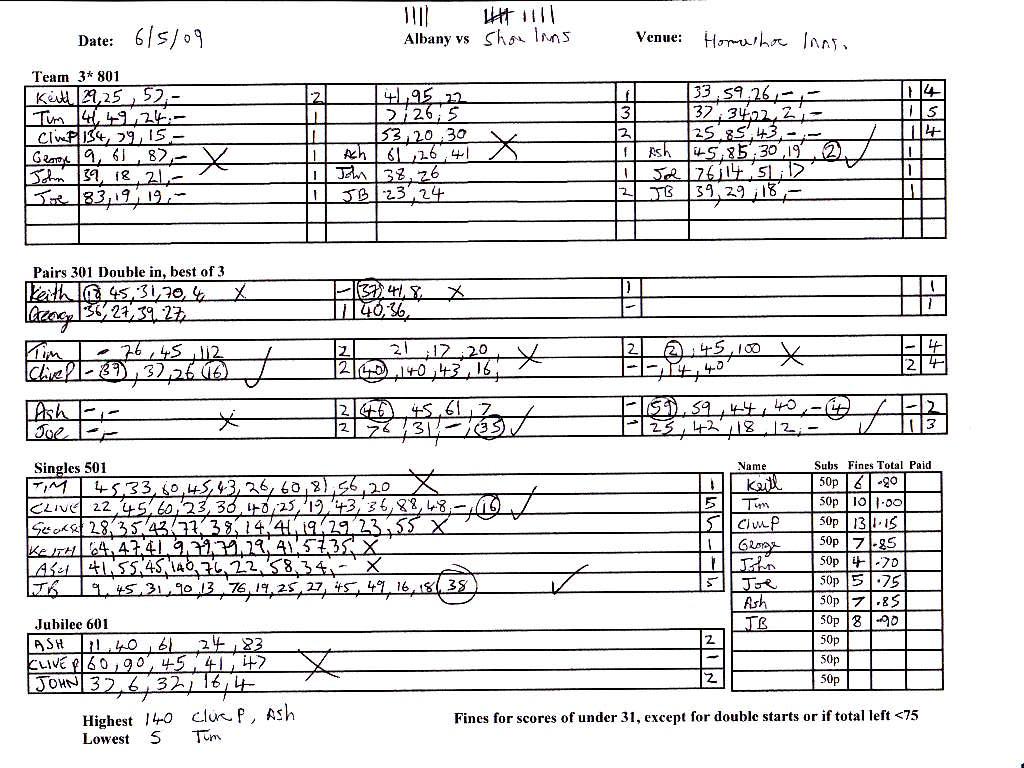 Date: 6/5/09 Albany vs Shoe Inns Venue: Horseshoe Inns.
Team 3* 801
Keith 29,25,57,- 2 41,95,22 1 33,59,26,-,- 1 4
Tim 41,49,24,- 1 7,26,5 3 37,34,22,2,- 1 5
Clive P 134,79,15,- 1 53,20,30 2 25,85,43,-,- 1 4
George 9,61,87,- 1 Ash 61,26,41 1 Ash 45,85,30,19,2 1
John 39,18,21,- 1 John 38,26 1 Joe 76,14,51,17 1
Joe 83,19,19,- 1 JB 23,24 2 JB 39,29,18,- 1
Pairs 301 Double in, best of 3
Keith 18,45,31,70,4, X - 37,41,8, X 1 1
George 36,27,39,27, 1 40,36, - 1
Tim - 76,45,112 2 21,17,20, 2 2,45,100 - 4
Clive P - 39,37,26,16 2 40,140,43,16, - -,14,40 2 4
Ash -,- 2 46,45,61,7 - 59,59,44,40,-4 - 2
Joe -,- 2 76,31,-,35 - 25,42,18,12,- 1 3
Singles 501
TIM 45,33,60,45,43,26,60,81,56,20 X 1
CLIVE 22,45,60,23,30,40,25,19,43,36,88,48,-,16 5
GEORGE 28,35,43,77,38,14,41,19,29,23,55 X 5
KEITH 64,47,41,9,79,79,29,41,57,35, X 1
ASH 41,55,45,140,76,22,58,34,- X 1
JB 9,45,31,90,13,76,19,25,27,45,49,16,18,38 5
Name Subs Fines Total Paid
Keith 50p 6 .80
Tim 50p 10 1.00
Clive P 50p 13 1.15
George 50p 7 .85
John 50p 4 .70
Joe 50p 5 .75
Ash 50p 7 .85
JB 50p 8 .90
50p
50p
50p
Jubilee 601
ASH 11,40,61,24,83 2
CLIVE P 60,90,45,41,47 -
JOHN 37,6,32,16,4 2
Highest 140 Clive P, Ash
Lowest 5 Tim
Fines for scores of under 31, except for double starts or if total left <75